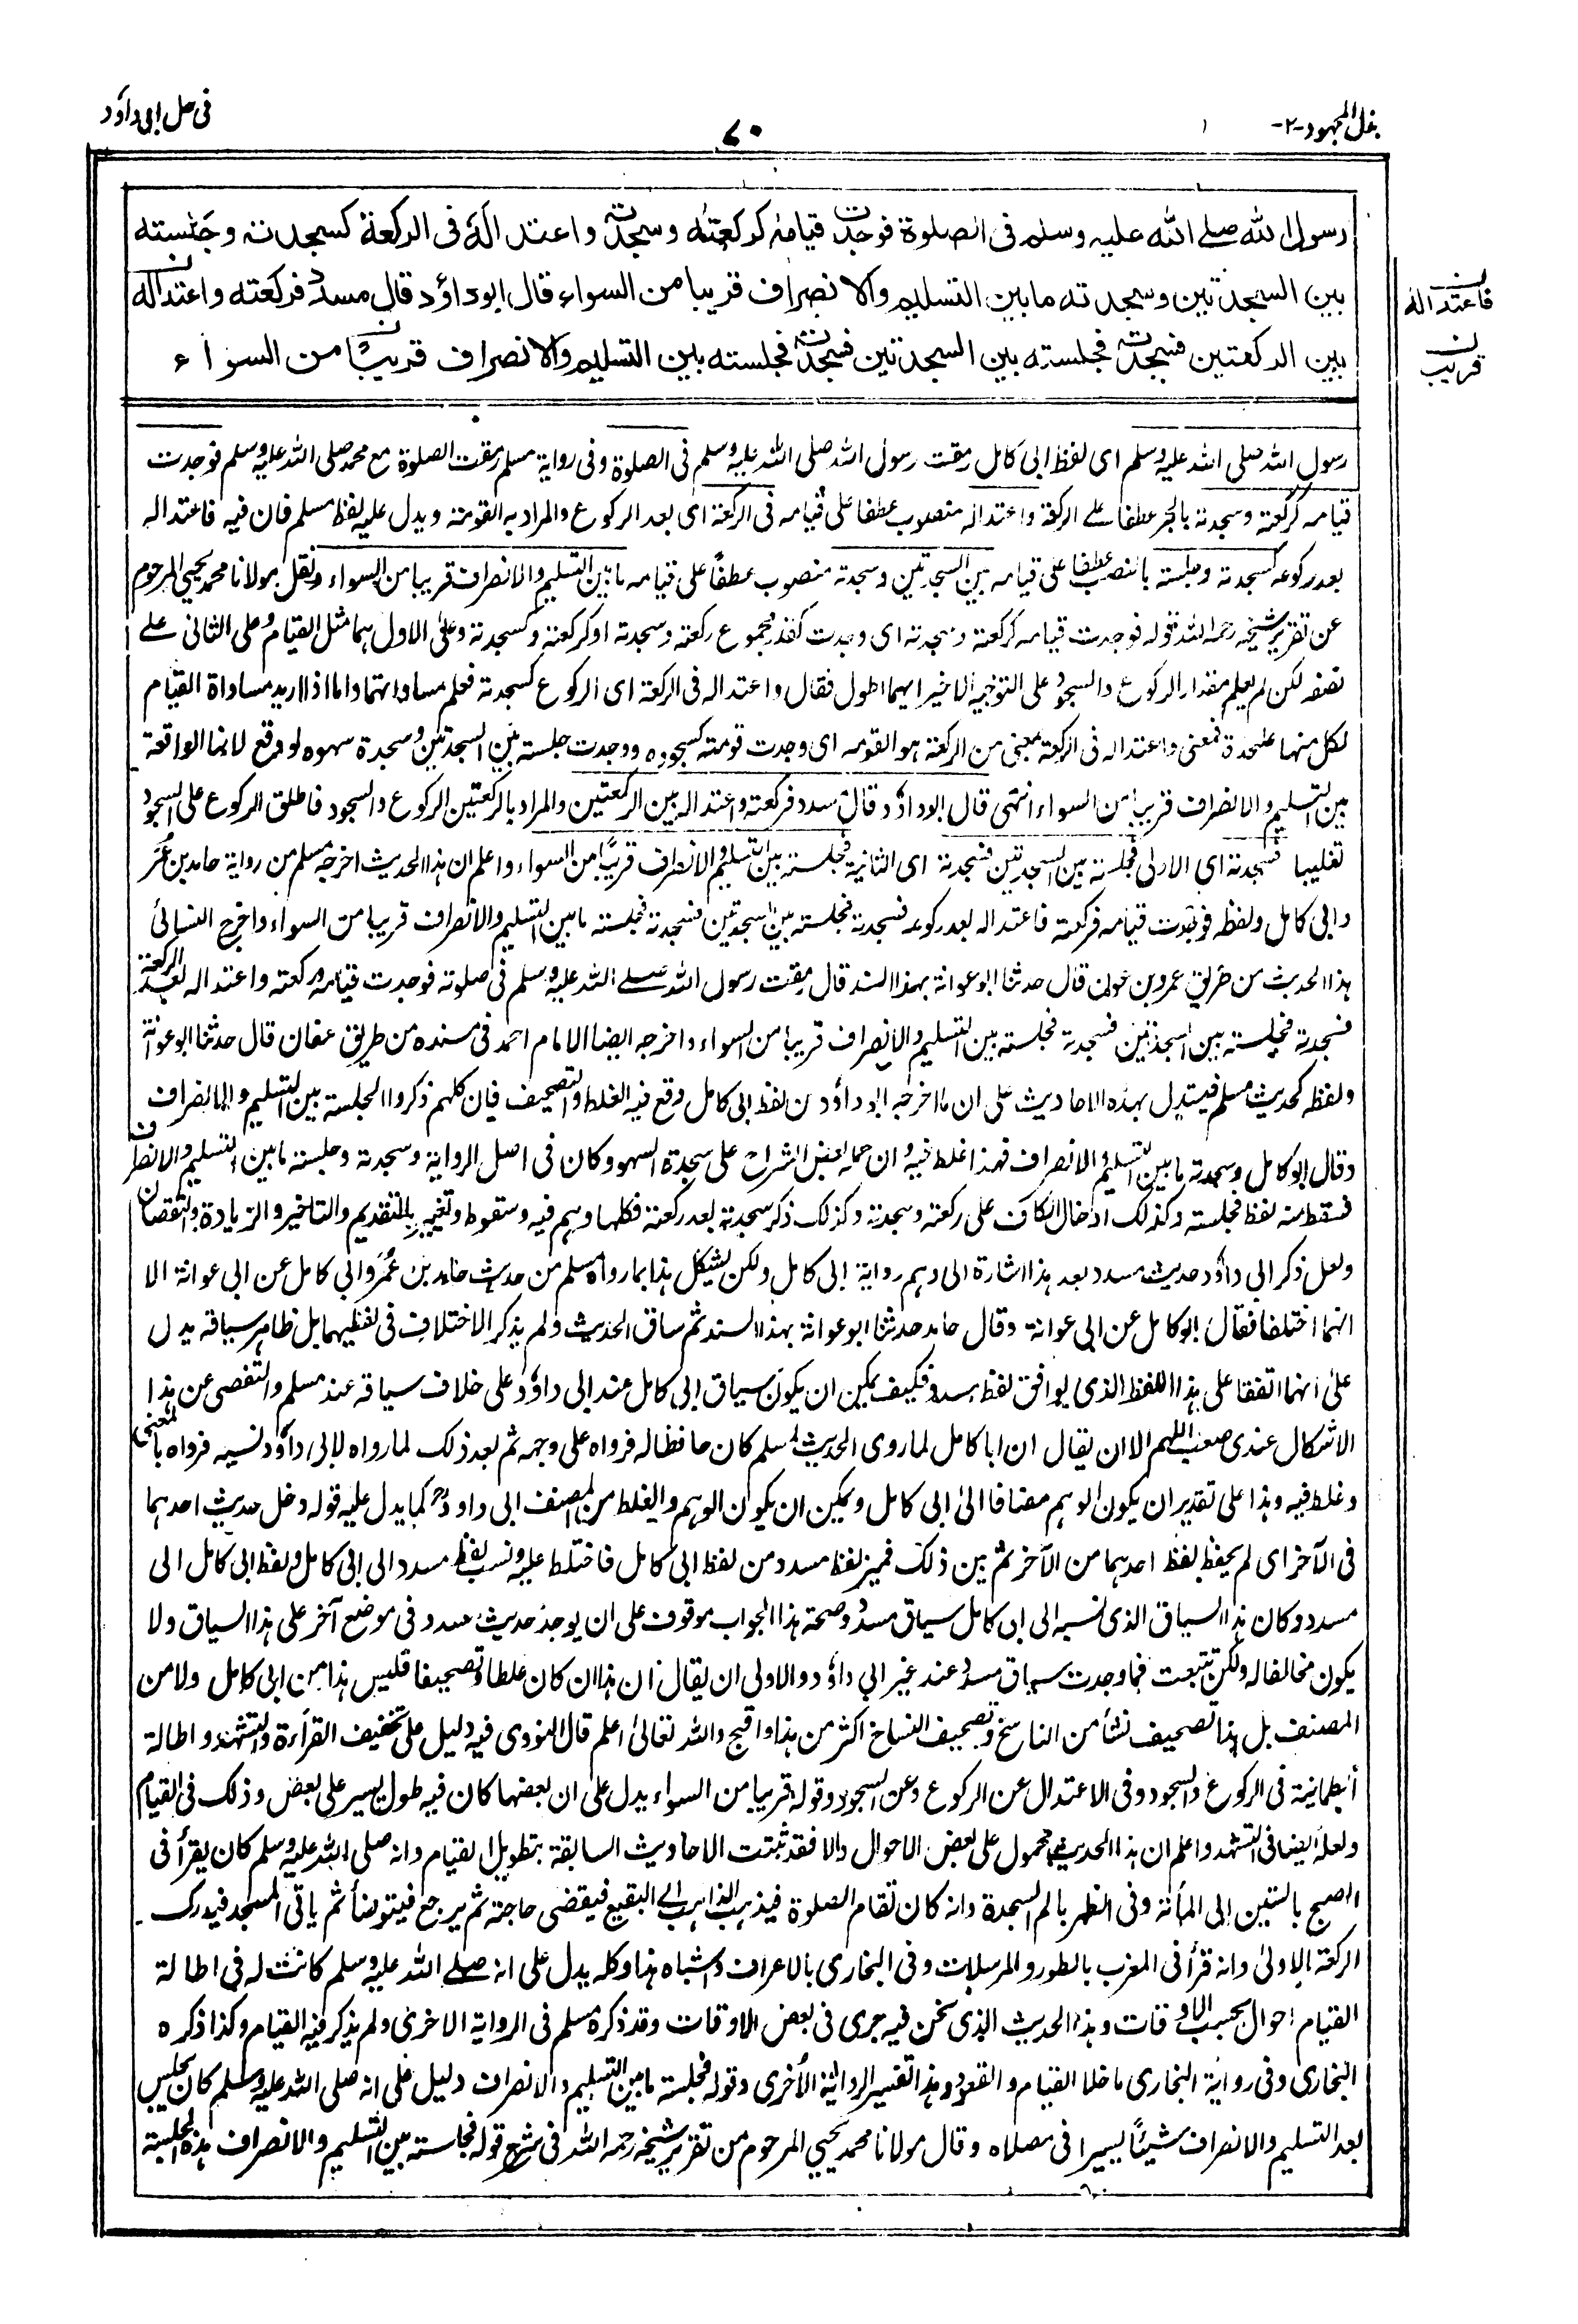 بذل المجهود -٢-
٧٠
فى حل ابى داؤد
رسول الله صلے الله عليه وسلم فى الصلوة فوجدت قيامه كركعته وسجدته واعتداله فى الركعة كسجدته وجلسته
بين السجدتين وسجدته ما بين التسليم والانصراف قريبا من السواء قال ابوداؤد قال مسدد فركعته واعتداله
بين الركعتين فسجدته فجلسته بين السجدتين فسجدته فجلسته بين التسليم والانصراف قريبًا من السواء
ن
فاعتداله
ن
قريب
رسول الله صلى الله عليه وسلم اى لفظ ابى كامل رمقت رسول الله صلى الله عليه وسلم فى الصلوة وفى رواية مسلم رمقت الصلوة مع محمد صلى الله عليه وسلم فوجدت
قيامه كركعته وسجدته بالجر عطفا على الركعة واعتداله منصوب عطفا على قيامه فى الركعة اى بعد الركوع والمراد به القومة ويدل عليه لفظ مسلم فان فيه فاعتداله
بعد ركوعه كسجدته وجلسته بالنصب عطفا على قيامه بين السجدتين وسجدته منصوب عطفًا على قيامه ما بين التسليم والانصراف قريبا من السواء ونقل مولانا محمد يحيى المرحوم
عن تقرير شيخه رحمه الله قوله فوجدت قيامه كركعته وسجدته اى وجدت كقدر مجموع ركعته وسجدته او كركعته وكسجدته وعلى الاول هما مثل القيام وعلى الثانى على
نصفه لكن لم يعلم مقدار الركوع والسجود على التوجيه الاخير ايهما اطول فقال واعتداله فى الركعة اى الركوع كسجدته فعلم مساواتهما واما اذا اريد مساواة القيام
لكل منها علٰحدة فمعنى واعتداله فى الركعة بمعنى من الركعة هو القومه اى وجدت قومته كسجوده ووجدت جلسته بين السجدتين وسجدة سهوه لو وقع لانها الواقعة
بين التسليم والانصراف قريبا من السواء انتهى قال ابوداؤد قال مسدد فركعته واعتداله بين الركعتين والمراد بالركعتين الركوع والسجود فاطلق الركوع على السجود
تغليبا فسجدته اى الاولى فجلسته بين السجدتين فسجدته اى الثانية فجلسته بين التسليم والانصراف قريبًا من السواء واعلم ان هذا الحديث اخرجه مسلم من رواية حامد بن عمر
وابى كامل ولفظه فوجدت قيامه فركعته فاعتداله بعد ركوعه فسجدته فجلسته بين السجدتين فسجدته فجلسته ما بين التسليم والانصراف قريبا من السواء واخرج النسائى
هذا الحديث من طريق عمرو بن عون قال حدثنا ابوعوانة بهذا السند قال رمقت رسول الله صلے الله عليه وسلم فى صلوته فوجدت قيامه وركعته واعتداله بعد الركعة
فسجدته فجلسته بين السجدتين فسجدته فجلسته بين التسليم والانصراف قريبا من السواء واخرجه ايضا الامام احمد فى مسنده من طريق عفان قال حدثنا ابوعوانة
ولفظه كحديث مسلم فيستدل بهذه الاحاديث على ان ما اخرجه ابوداؤد من لفظ ابى كامل وقع فيه الغلط والتصحيف فان كلهم ذكروا الجلسة بين التسليم والانصراف
وقال ابو كامل وسجدته ما بين التسليم والانصراف فهذا غلط فيه وان حمله بعض الشراح على سجدة السهو وكان فى اصل الرواية وسجدته وجلسته ما بين التسليم والانصراف
فسقط منه لفظ فجلسته وكذلك ادخال الكاف على ركعته وسجدته وكذلك ذكر سجدته بعد ركعته فكلها وهم فيه وسقوط وتغيير بالتقديم والتاخير والزيادة والنقصان
ولعل ذكر ابى داؤد حديث مسدد بعد هذا اشارة الى وهم رواية ابى كامل ولكن يشكل هذا بما رواه مسلم من حديث حامد بن عمر وابى كامل عن ابى عوانة الا
انهما اختلفا فقال ابو كامل عن ابى عوانة وقال حامد حدثنا ابوعوانة بهذا السند ثم ساق الحديث ولم يذكر الاختلاف فى لفظيهما بل ظاهر سياقه يدل
على انهما اتفقا على هذا اللفظ الذى يوافق لفظ مسدد فكيف يمكن ان يكون سياق ابى كامل عند ابى داؤد على خلاف سياقه عند مسلم والتفصى عن هذا
الاشكال عندى صعب اللهم الا ان يقال ان ابا كامل لما روى الحديث لمسلم كان حافظا له فرواه على وجهه ثم بعد ذلك لما رواه لابى داؤد نسيه فرواه بالمعنى
وغلط فيه وهذا على تقدير ان يكون الوهم مضافا الى ابى كامل ويمكن ان يكون الوهم والغلط من المصنف ابى داودؒ كما يدل عليه قوله دخل حديث احدهما
فى الآخر اى لم يحفظ لفظ احدهما من الآخر ثم بين ذلك فميز لفظ مسدد من لفظ ابى كامل فاختلط عليه ونسب لفظ مسدد الى ابى كامل ولفظ ابى كامل الى
مسدد وكان هذا السياق الذى نسبه الى ابى كامل سياق مسدد وصحة هذا الجواب موقوف على ان يوجد حديث مسدد فى موضع آخر على هذا السياق ولا
يكون مخالفا له ولكن تتبعت فما وجدت سياق مسدد عند غير ابى داؤد والاولى ان يقال ان هذا ان كان غلطا وتصحيفا فليس هذا من ابى كامل ولا من
المصنف بل هذا تصحيف نشأ من الناسخ وتصحيف النساخ اكثر من هذا واقبح والله تعالى اعلم قال النووى فيه دليل على تخفيف القرأءة والتشهد واطالة
الطمانينة فى الركوع والسجود وفى الاعتدال عن الركوع وعن السجود وقوله قريبا من السواء يدل على ان بعضها كان فيه طول يسير على بعض وذلك فى القيام
ولعله ايضا فى التشهد واعلم ان هذا الحديث محمول على بعض الاحوال والا فقد ثبتت الاحاديث السابقة بتطويل القيام وانه صلى الله عليه وسلم كان يقرأ فى
الصبح بالستين الى المأئة وفى الظهر بالم السجدة وانه كان تقام الصلوة فيذهب الذاهب الى البقيع فيقضى حاجته ثم يرجع فيتوضأ ثم ياتى المسجد فيدرك
الركعة الاولى وانه قرأ فى المغرب بالطور والمرسلات وفى البخارى بالاعراف واشباه هذا وكله يدل على انه صلے الله عليه وسلم كانت له فى اطالة
القيام احوال بحسب الاوقات وهذا الحديث الذى نحن فيه جرى فى بعض الاوقات وقد ذكره مسلم فى الرواية الاخرى ولم يذكر فيه القيام وكذا ذكره
البخارى وفى رواية البخارى ما خلا القيام والقعود وهذا تفسير الرواية الأخرى وقوله فجلسته ما بين التسليم والانصراف دليل على انه صلى الله عليه وسلم كان يجلس
بعد التسليم والانصراف شيئًا يسيرا فى مصلاه وقال مولانا محمد يحيى المرحوم من تقرير شيخه رحمه الله فى شرح قوله فجلسته بين التسليم والانصراف هذه الجلسة